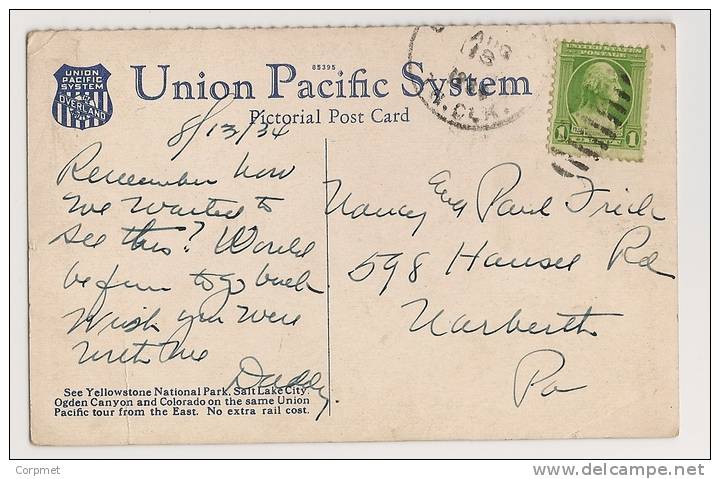 85395
UNION
PACIFIC
SYSTEM
THE
OVERLAND
Union Pacific System
Pictorial Post Card
AUG
18
CLK.
UNITED STATES
POSTAGE
1 1
8/13/34
Remember how
we wanted to
see this? Would
be fun to go back
Wish you were
with me
Daddy
Nancy and Paul Frick
598 Hansel Rd
Narberth
Pa
See Yellowstone National Park, Salt Lake City,
Ogden Canyon and Colorado on the same Union
Pacific tour from the East. No extra rail cost.
Corpmet
www.delcampe.net